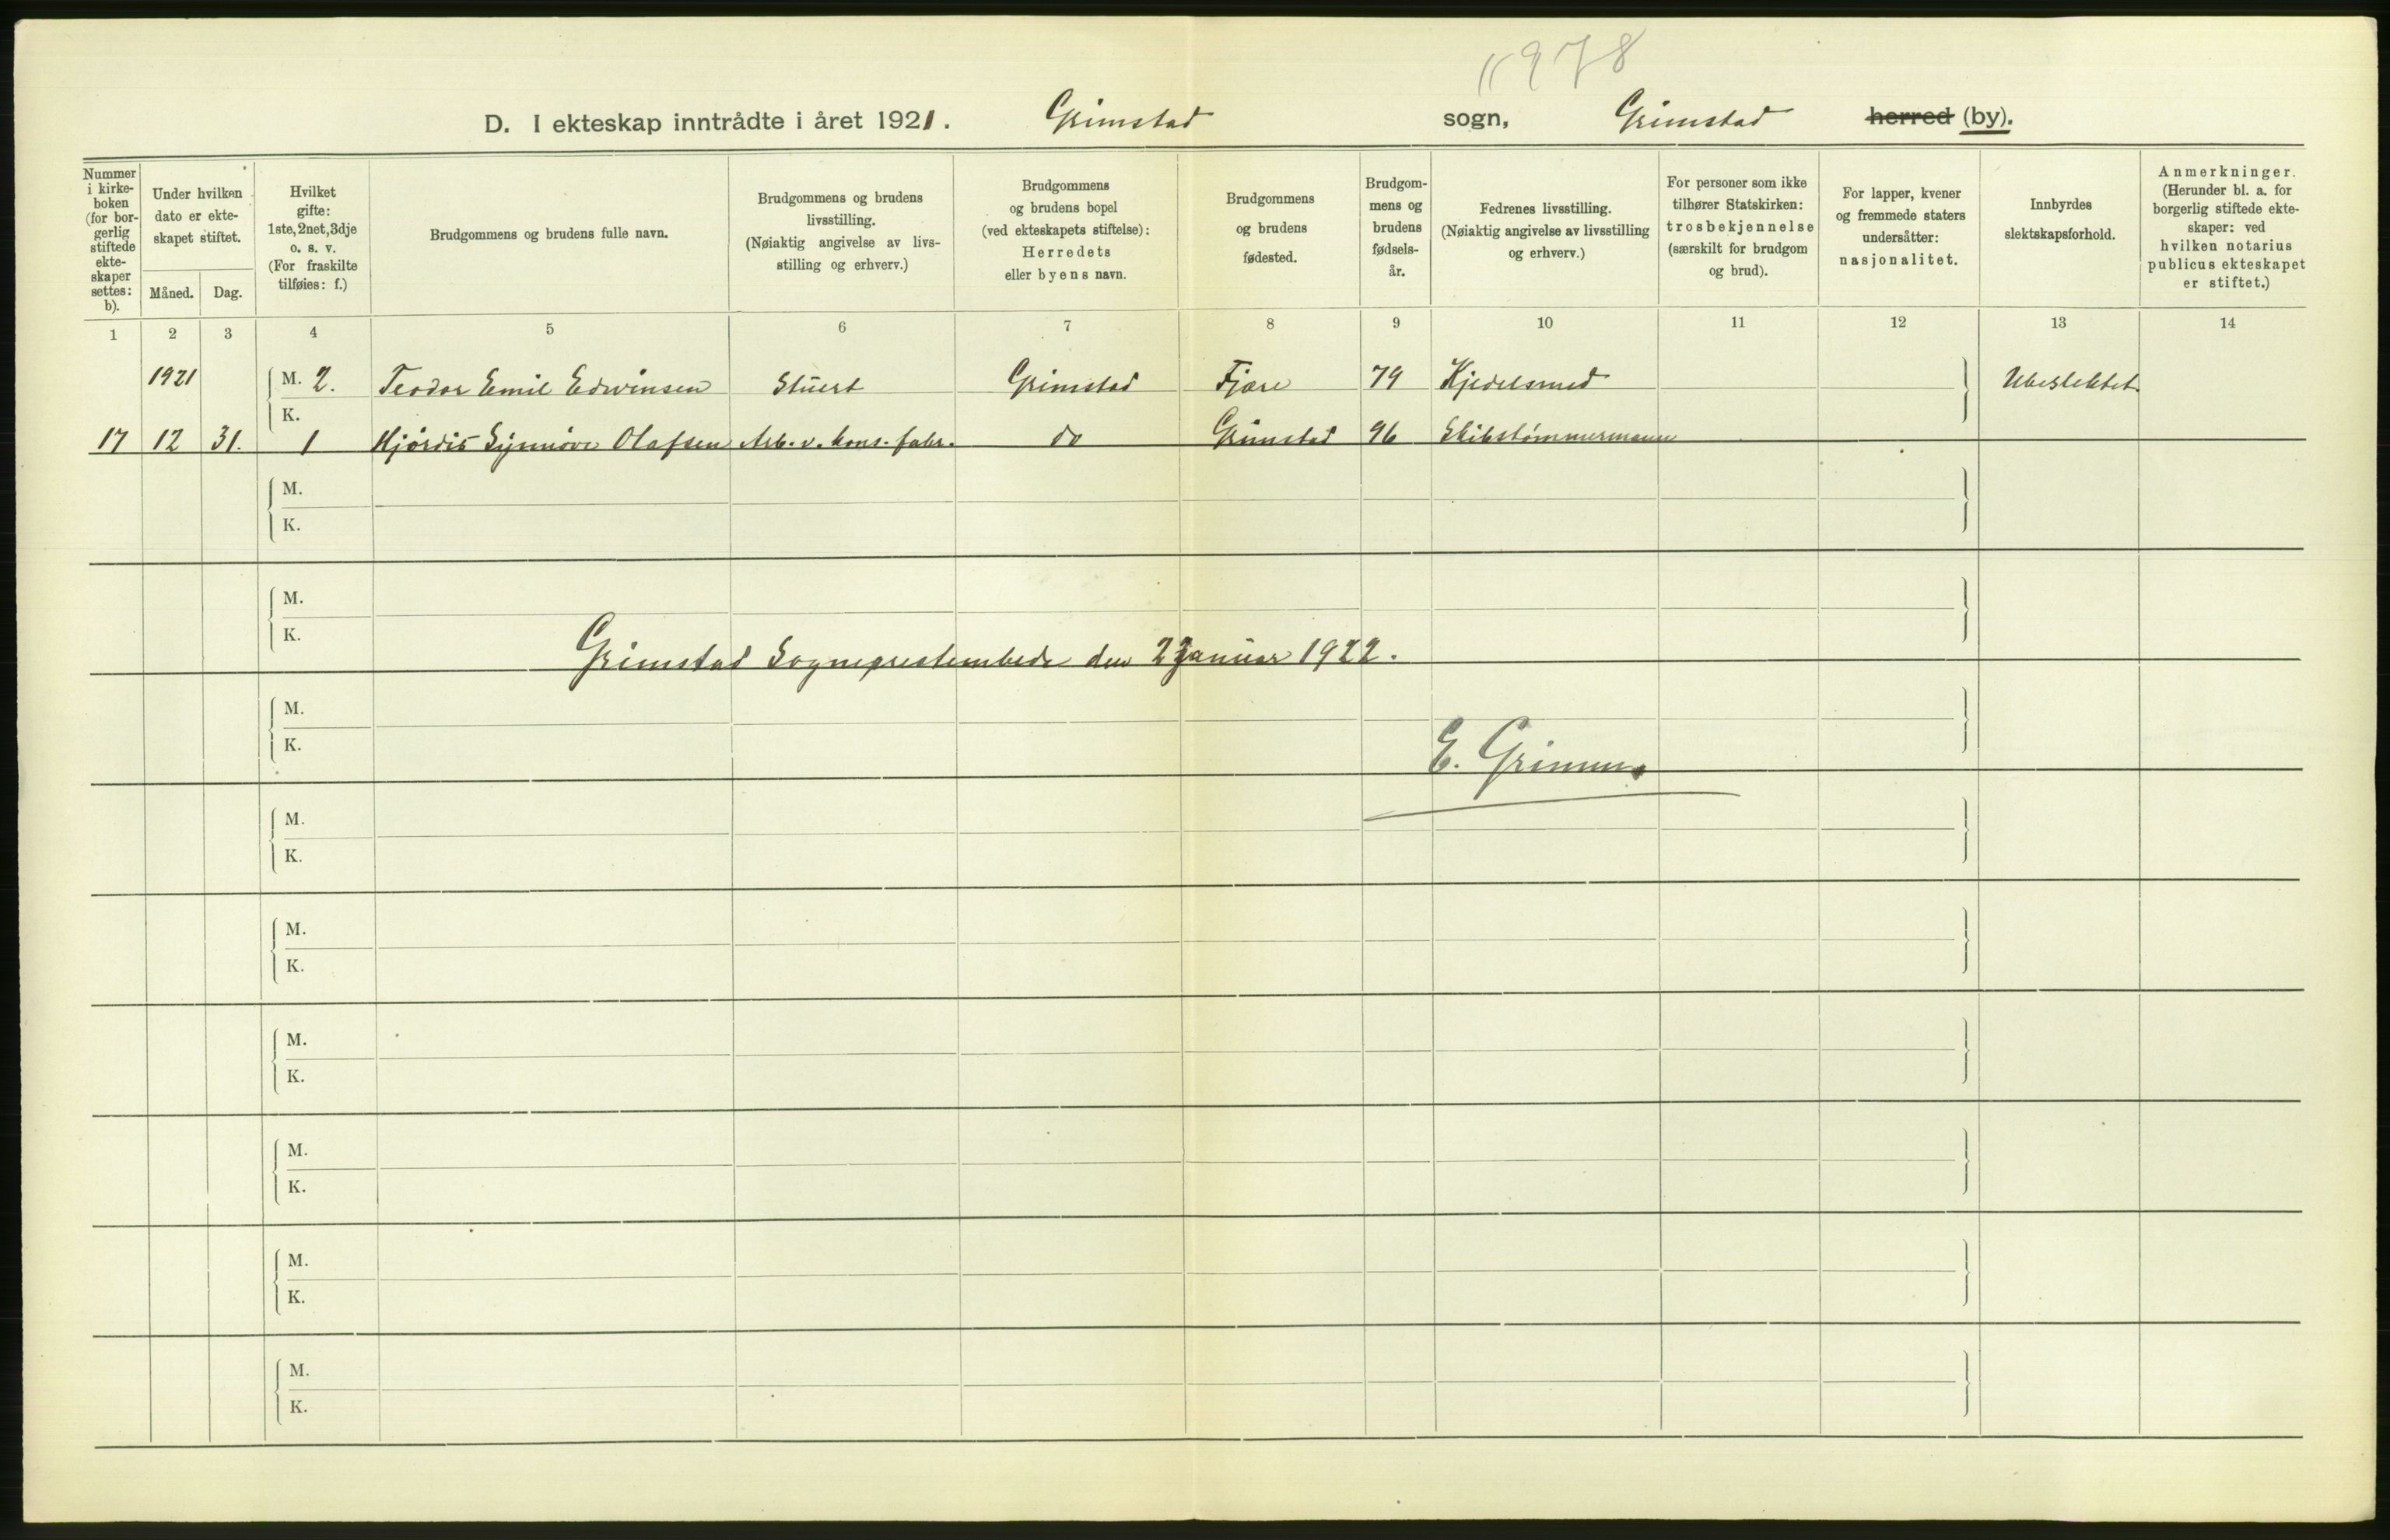 11978
D. I ekteskap inntrådte i året 1921. Grimstad sogn, Grimstad herred (by).
Nummer i kirke-boken (for bor-gerlig stiftede ekte-skaper settes: b).
Under hvilken dato er ekte-skapet stiftet.
Måned. Dag.
Hvilket gifte: 1ste, 2net, 3dje o. s. v. (For fraskilte tilføies: f.)
Brudgommens og brudens fulle navn.
Brudgommens og brudens livsstilling. (Nøiaktig angivelse av livs-stilling og erhverv.)
Brudgommens og brudens bopel (ved ekteskapets stiftelse): Herredets eller byens navn.
Brudgommens og brudens fødested.
Brudgom-mens og brudens fødsels-år.
Fedrenes livsstilling. (Nøiaktig angivelse av livsstilling og erhverv.)
For personer som ikke tilhører Statskirken: trosbekjennelse (særskilt for brudgom og brud).
For lapper, kvener og fremmede staters undersåtter: nasjonalitet.
Innbyrdes slektskapsforhold.
Anmerkninger. (Herunder bl. a. for borgerlig stiftede ekte-skaper: ved hvilken notarius publicus ekteskapet er stiftet.)
1 2 3 4 5 6 7 8 9 10 11 12 13 14
1921 M. 2. Teodor Emil Edwinsen Stuert Grimstad Fjære 79 Kjedelsmed Ubeslektet.
K.
17 12 31. 1 Hjördis Synnöve Olafsen Arb. v. kons. fabr. do Grimstad 96 Skibstömmermann
M.
K.
M.
K.
Grimstad Sogneprestembede den 2 Januar 1922.
M.
K.
E. Grimnes
M.
K.
M.
K.
M.
K.
M.
K.
M.
K.
M.
K.